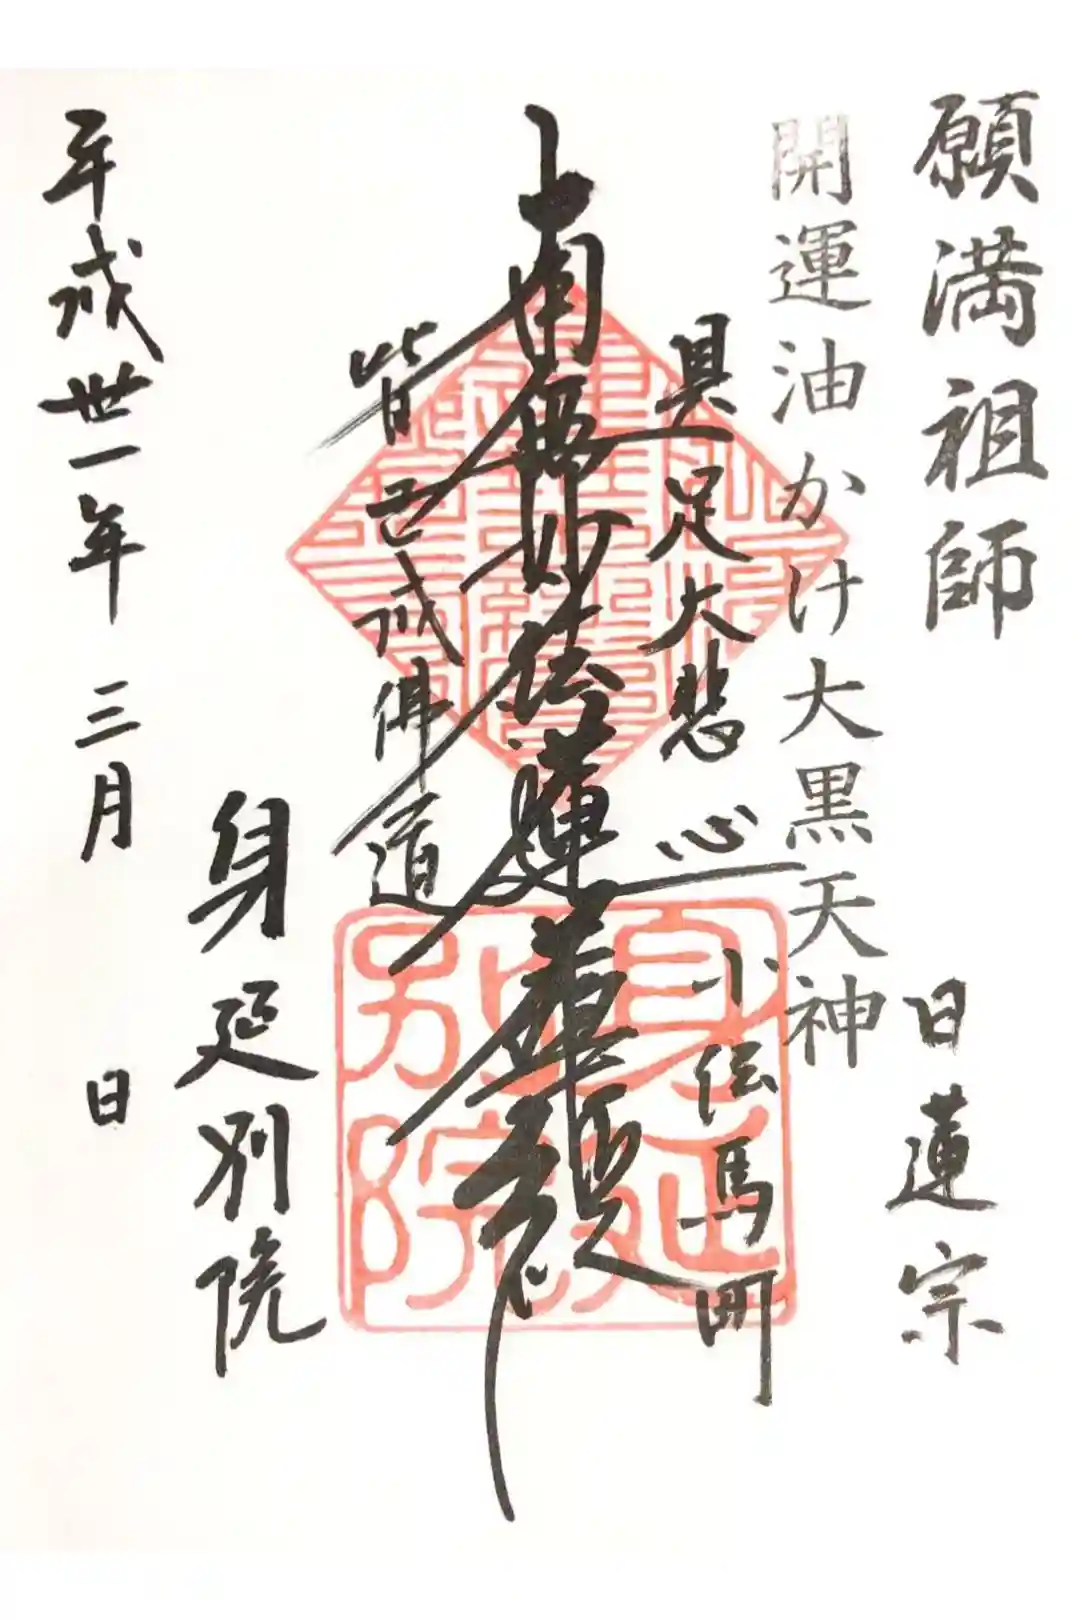 願満祖師
日蓮宗
開運油かけ大黒天神
具足大悲心
小伝馬町
南無妙法蓮華経
皆已成佛道
身延別院
平成丗一年 三月 日
身延
山
別院